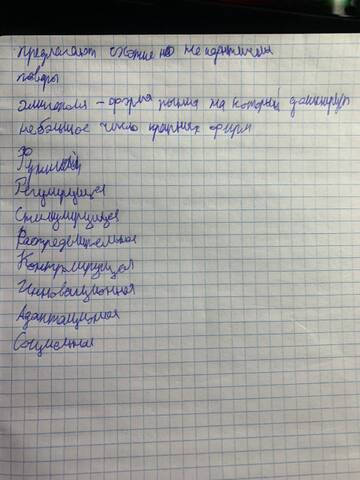 предлагают схожие но не идентичны
товары
олигополия – форма рынка на которой доминируют
небольшое число крупных фирм
Ф
Функции
Регулирующая
Стимулирующая
Распределительная
Контролирующая
Инновационная
Адаптационная
Социальная